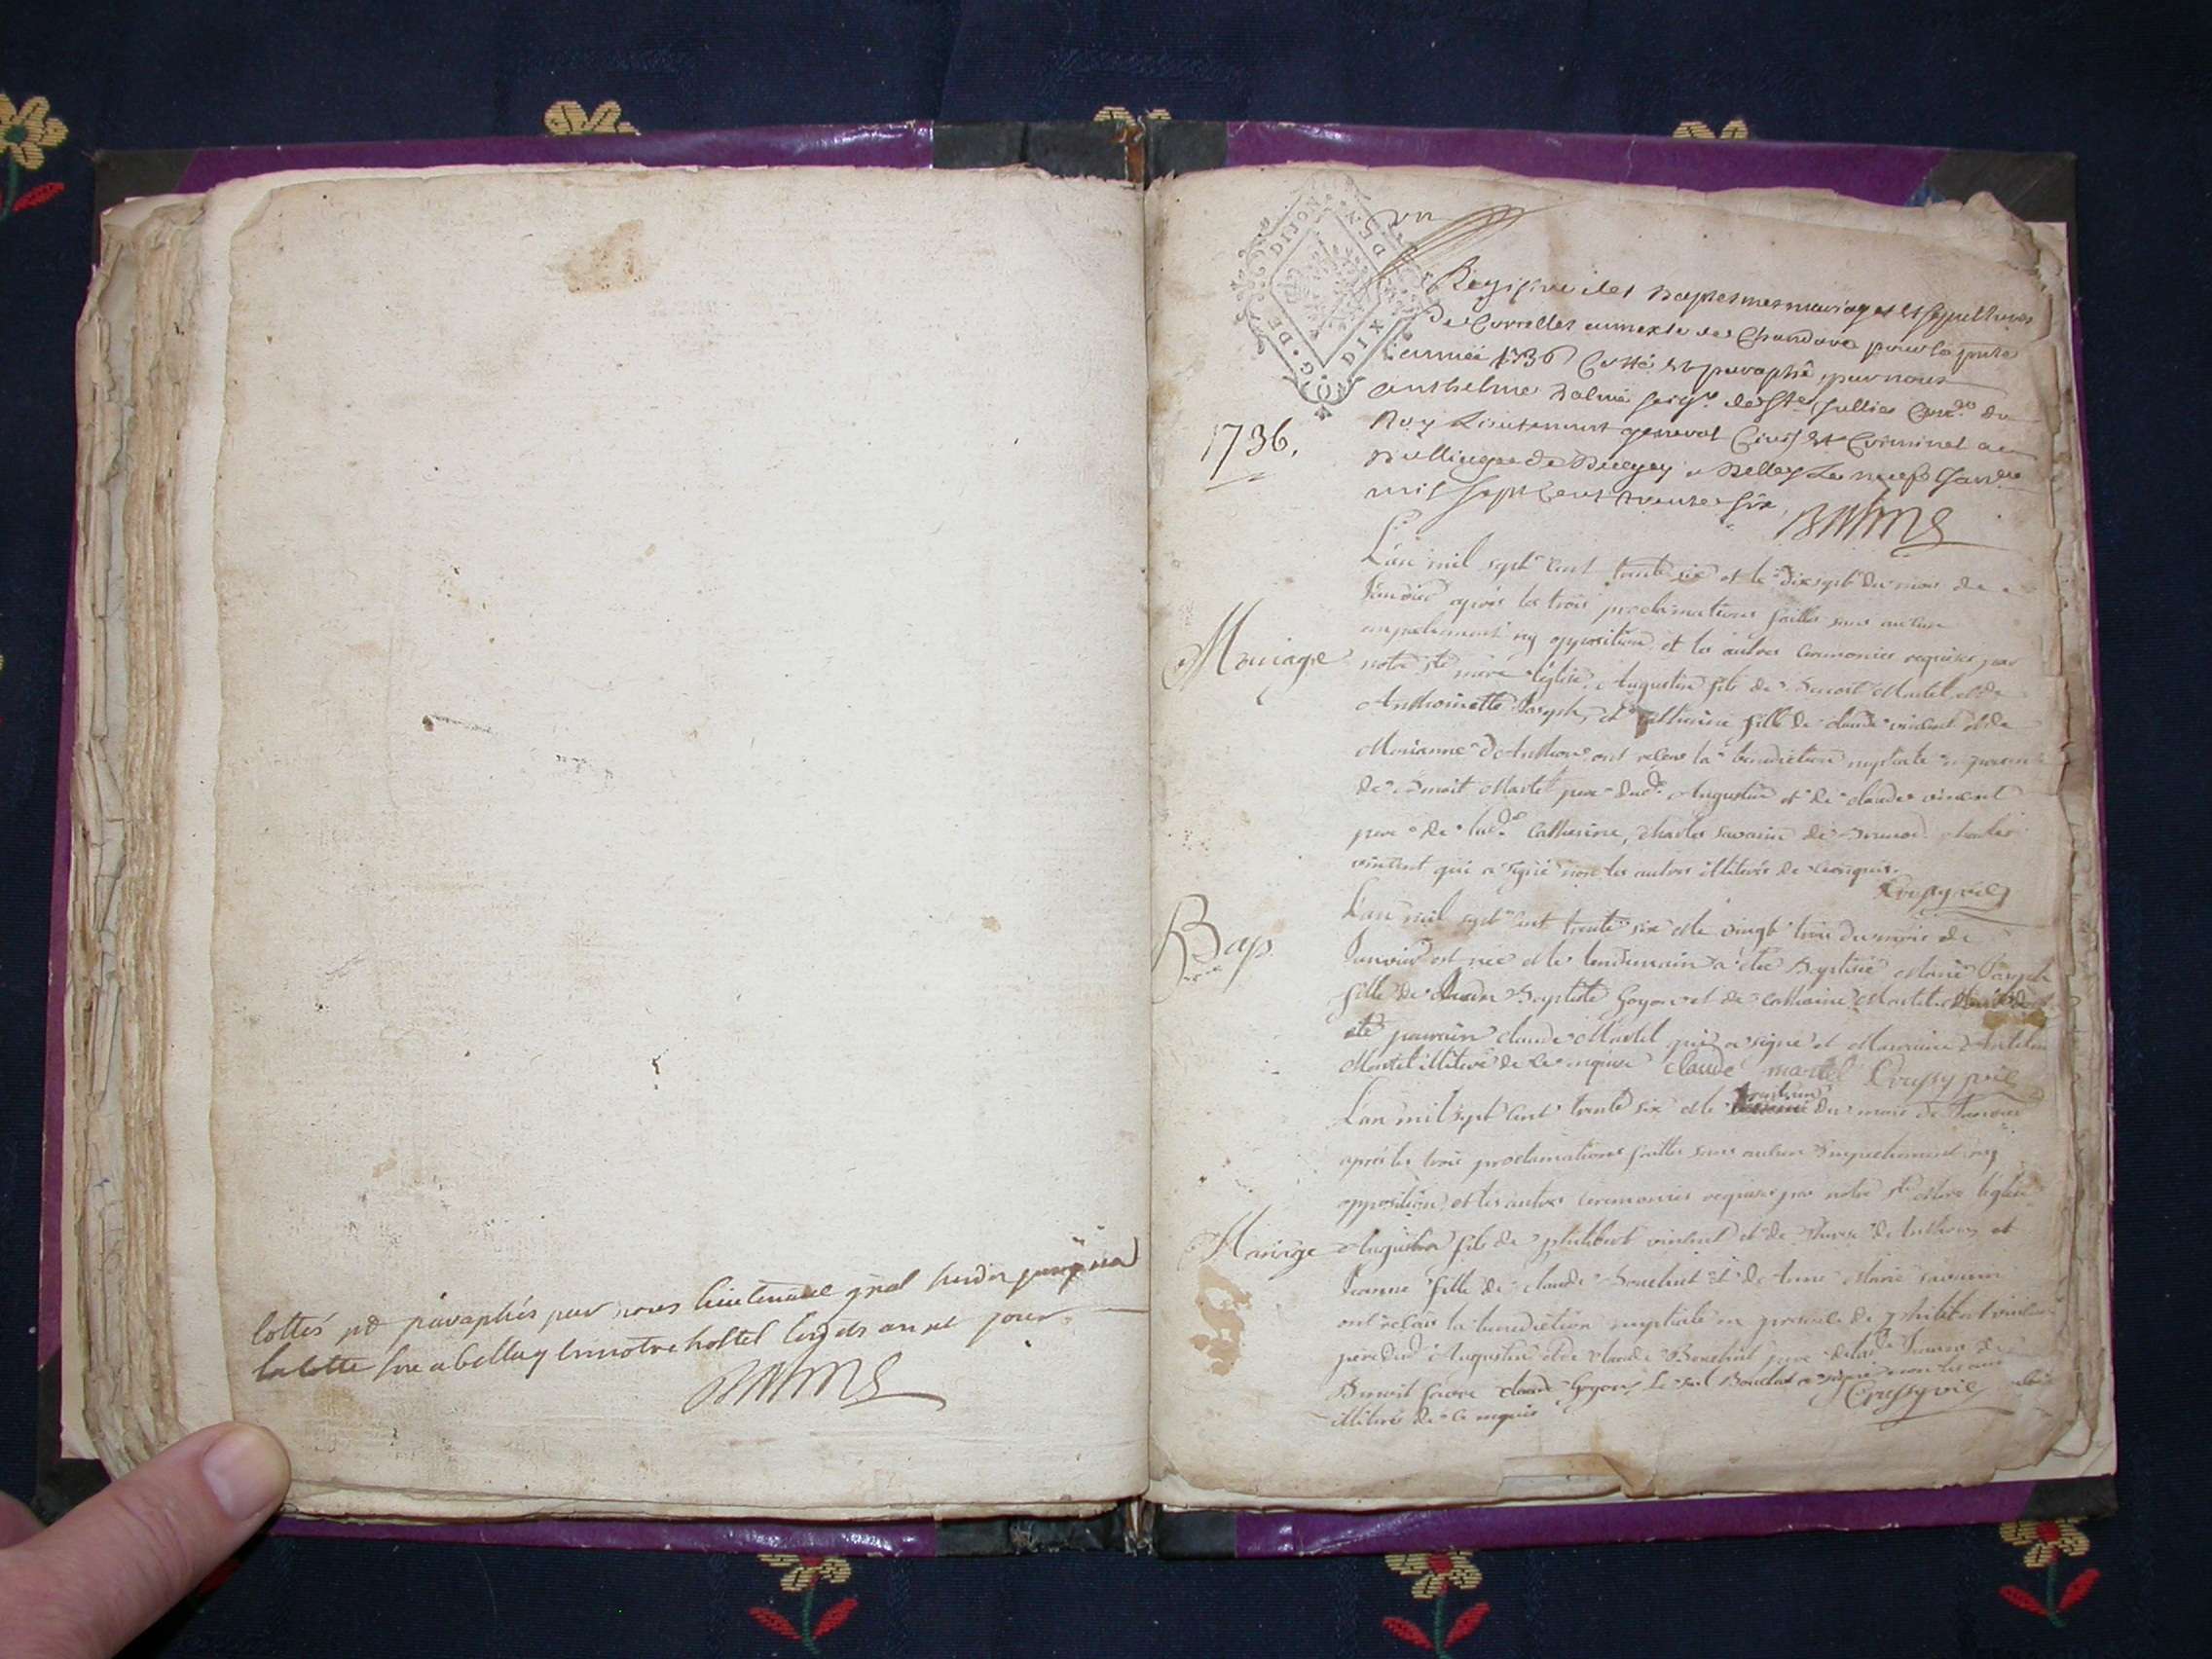 cottés et paraphés par nous lieutenant gñal susdit jusqu'icy
la cotte fine a belley en notre hostel les ds an et jour
Balme
G. DE DIJON
DIX DEN
un
Registre des baptesmes mariages et sepultures
de Corcelles annexe de Chandore pour la pñte
année 1736 Cotté et paraphé par nous
anthelme Balme seigr de Ste Jullie Conser du
Roy Lieutenant general Civil et Criminel au
Bailliage de Bugey a Belley Le neuf Janvier
mil sept Cent trente six
Balme
1736.
Mariage
L'an mil sept cent trente six et le dixsept du mois de
Janvier après les trois proclamations faittes sans aucun
empechement ny opposition et les autres ceremonies requises par
notre ste mere l'église, Augustin fils de Benoit Martel et de
Anthoinette Joseph, et Catherine fille de claude vincent et de
Marianne D'Anthon ont reçus la benediction nuptiale en presence
de Benoit Martel pere dud. Augustin et de claude vincent
pere de lad. Catherine, charles savarin de charles
vincent qui a signé non les autres illiterés de ce enquis.
Crussy vic
Bap
L'an mil sept cent trente six et le vingt trois du mois de
Janvier est née et le lendemain a été Baptisée Marie Joseph
fille de Baptiste Goyon et de Catherine Martel
eté parrain claude Martel qui a signé et Marraine
Martel illiteré de ce enquise claude martel Crussy vic
L'an mil sept cent trente six et le trentieme du mois de Janvier
après les trois proclamations faittes sans aucun empechement ny
opposition et les autres ceremonies requises par notre ste Mere l'eglise
Mariage
Augustin fils de philibert vincent et de de Anthon et
Jeanne fille de claude Bouchut et de Anne Marie savarin
ont reçus la benediction nuptiale en presence de philibert vincent
pere dud Augustin et de claude Bouchut pere de lad. Jeanne de
Benoit favre claude Goyon, Le seul Bouchut a signé non les autres
illiterés de ce enquis
Crussy vic